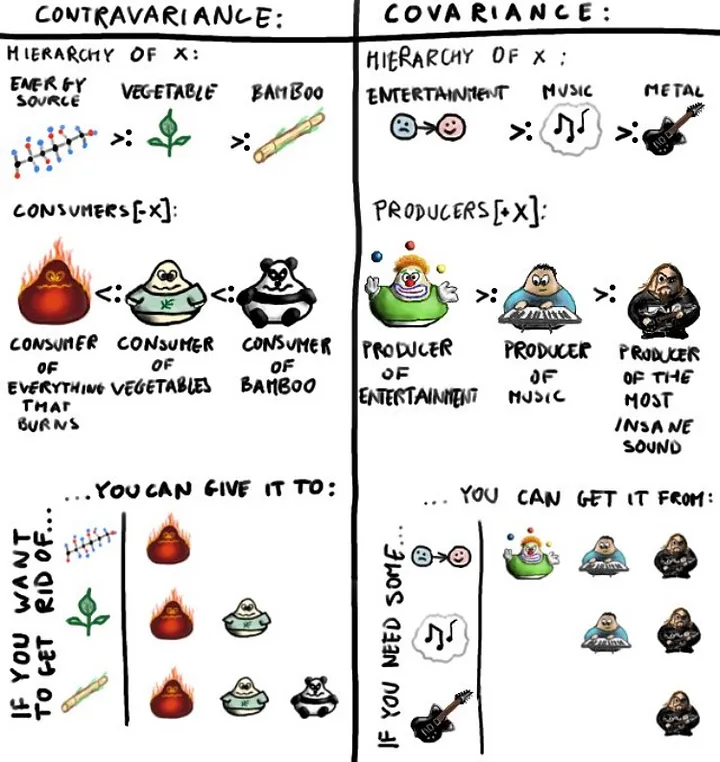 CONTRAVARIANCE:
HIERARCHY OF X:
ENERGY SOURCE >: VEGETABLE >: BAMBOO
CONSUMERS[-X]:
<: <:
CONSUMER OF EVERYTHING THAT BURNS
CONSUMER OF VEGETABLES
CONSUMER OF BAMBOO
...YOU CAN GIVE IT TO:
IF YOU WANT TO GET RID OF...
COVARIANCE:
HIERARCHY OF X:
ENTERTAINMENT >: MUSIC >: METAL
PRODUCERS[+X]:
>: >:
PRODUCER OF ENTERTAINMENT
PRODUCER OF MUSIC
PRODUCER OF THE MOST INSANE SOUND
... YOU CAN GET IT FROM:
IF YOU NEED SOME...